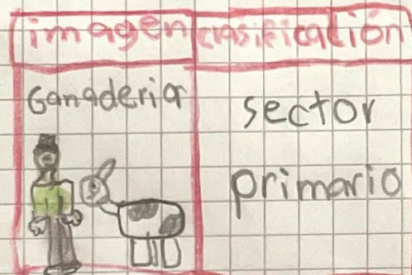 imagen clasificación
Ganaderia sector
primario